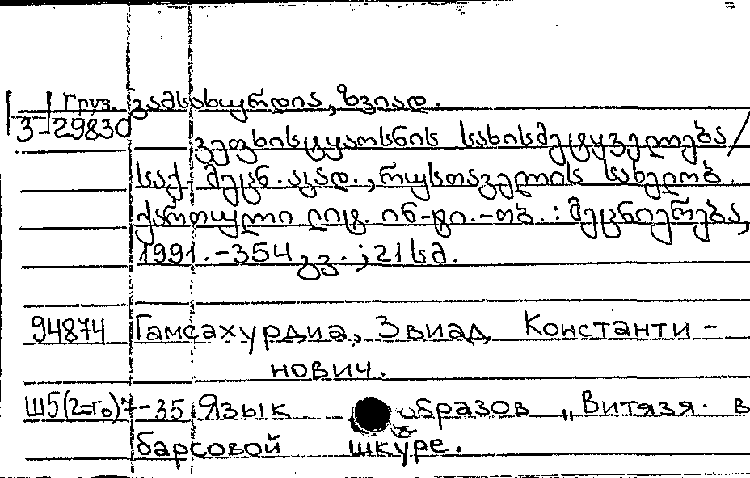 Груз. გამსახურდია, ზვიად.
3-29830
ვეფხისტყაოსნის სახისმეტყველება/
საქ. მეცნ. აკად., რუსთაველის სახელობ.
ქართული ლიტ. ინ-ტი.-თბ.: მეცნიერება,
1991.-354 გვ.; 21 სმ.
94874 Гамсахурдиа, Звиад Константи-
нович.
Ш5(2=Го) -35 Язык образов „Витязя в
барсовой шкуре.